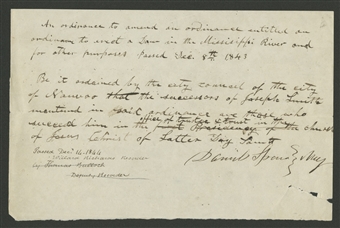 An ordinance to amend an ordinance entitled an
ordinance to erect a Dam in the Mississippi River and
for other purposes. Passed Dec. 8th 1843
Be it ordained by the city council of the city
of Nauvoo that the successors of Joseph Smith
mentioned in said ordinance are those who
office of trustee in trust in the
succeed him in the first Presidency of the church
of Jesus Christ of Latter Day Saints
Daniel Spencer May
Passed Decr. 14. 1844
Willard Richards Recorder
by Thomas Bullock
Deputy Recorder